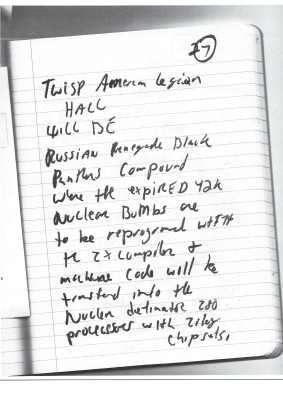 27
Twisp American Legion
HALL
WILL BE
RUSSIAN Renegade Black
Panthers Compound
Were the EXPIRED Y2K
Nuclear Bombs are
to be reprogramed with
the ZX compiler &
machine code will be
transferd into the
Nuclear detinator Z80
processers with Zilog
Chipsets.